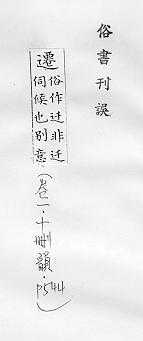 俗書刊誤
遷 俗作迁非迁
伺候也別意
(卷一·十刪韻·p544)